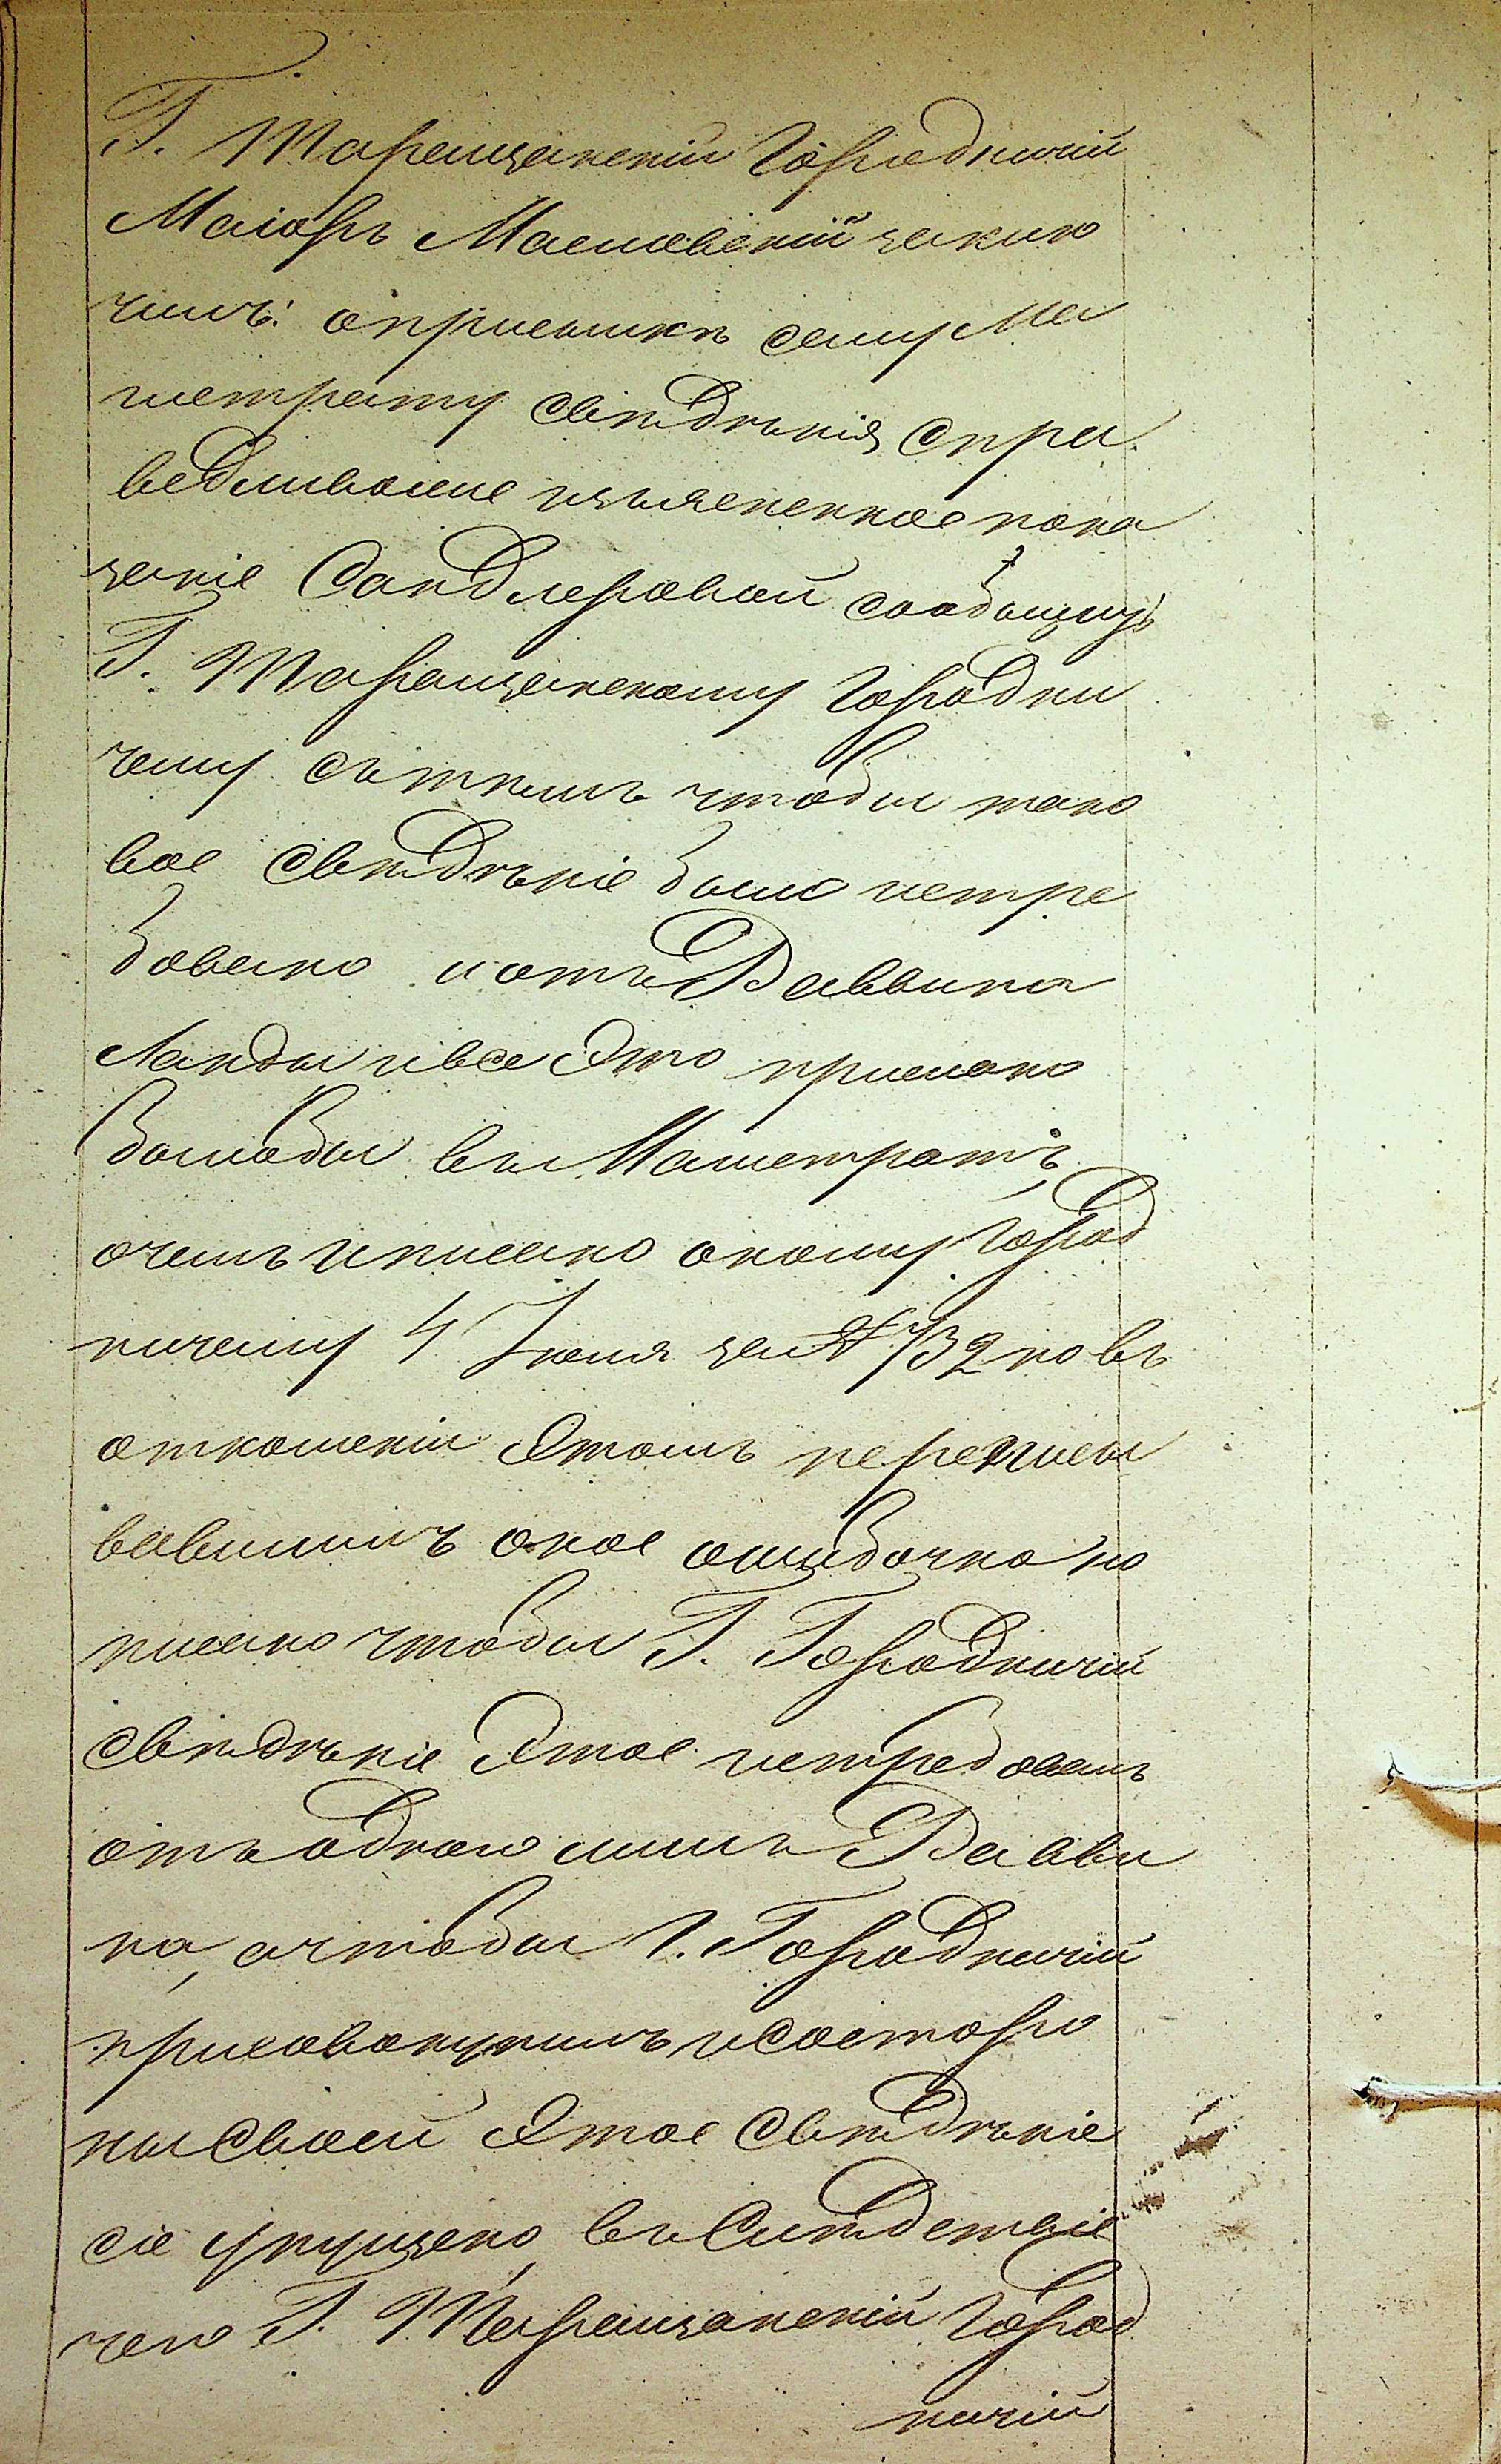 Г. Таращанскій Городничій
Маіоръ Масловскій заклю
чилъ: оприсылкѣ сему Ма
гистрату свѣдѣнія спра
ведливолие изъясненное пока
заніе Сандлеровой сообщить
Г. Таращанскому Городни
чему сътѣмъ чтобы тако
вое свѣдѣніе было истре
бовано иотъ Раввина
Ланды ивсе Это прислано
былобы въ Магистратъ,
очемъ иписано оному Город
ничему 4 Іюля за № 732 но въ
отношеніи Этомъ переписы
вавшимъ оное ошибочно на
писано чтобы Г. Городничій
свѣдѣніе Этое истребовалъ
отъ одного лишь Равви
на, ачтобы Г. Городничій
присовокупилъ исосторо
ны своей Этое свѣдѣніе
сіе упущено, въслѣдствіе
чего Г. Таращанскій Город
ничій